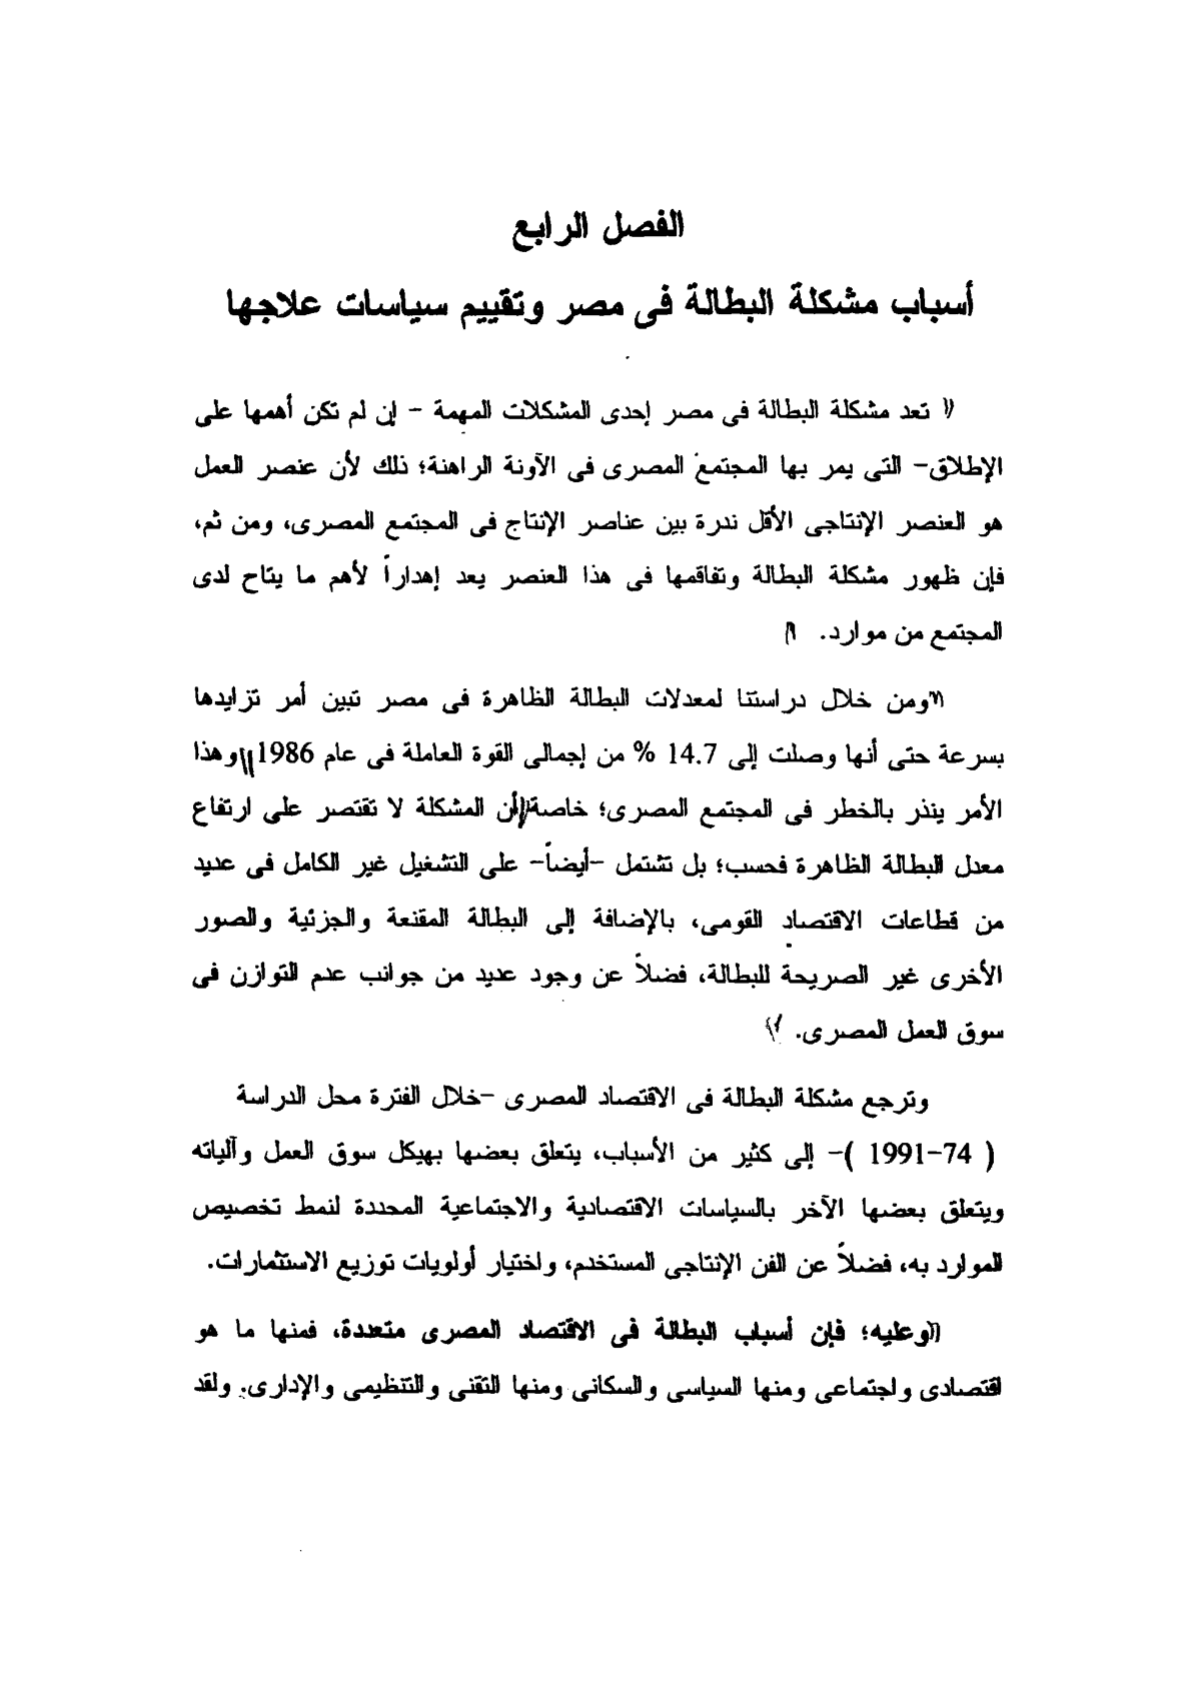 الفصل الرابع
أسباب مشكلة البطالة فى مصر وتقييم سياسات علاجها
تعد مشكلة البطالة فى مصر إحدى المشكلات المهمة - إن لم تكن أهمها على
الإطلاق- التى يمر بها المجتمع المصرى فى الآونة الراهنة؛ ذلك لأن عنصر العمل
هو العنصر الإنتاجى الأقل ندرة بين عناصر الإنتاج فى المجتمع المصرى، ومن ثم،
فإن ظهور مشكلة البطالة وتفاقمها فى هذا العنصر يعد إهداراً لأهم ما يتاح لدى
المجتمع من موارد.
ومن خلال دراستنا لمعدلات البطالة الظاهرة فى مصر تبين أمر تزايدها
بسرعة حتى أنها وصلت إلى 14.7 % من إجمالى القوة العاملة فى عام 1986 وهذا
الأمر ينذر بالخطر فى المجتمع المصرى؛ خاصة أن المشكلة لا تقتصر على ارتفاع
معدل البطالة الظاهرة فحسب؛ بل تشتمل -أيضاً- على التشغيل غير الكامل فى عديد
من قطاعات الاقتصاد القومى، بالإضافة إلى البطالة المقنعة والجزئية والصور
الأخرى غير الصريحة للبطالة، فضلاً عن وجود عديد من جوانب عدم التوازن فى
سوق العمل المصرى.
وترجع مشكلة البطالة فى الاقتصاد المصرى -خلال الفترة محل الدراسة
( 74-1991 )- إلى كثير من الأسباب، يتعلق بعضها بهيكل سوق العمل وآلياته
ويتعلق بعضها الآخر بالسياسات الاقتصادية والاجتماعية المحددة لنمط تخصيص
الموارد به، فضلاً عن الفن الإنتاجى المستخدم، واختيار أولويات توزيع الاستثمارات.
وعليه؛ فإن أسباب البطالة فى الاقتصاد المصرى متعددة، فمنها ما هو
اقتصادى واجتماعى ومنها السياسى والسكانى ومنها التقنى والتنظيمى والإدارى. ولقد